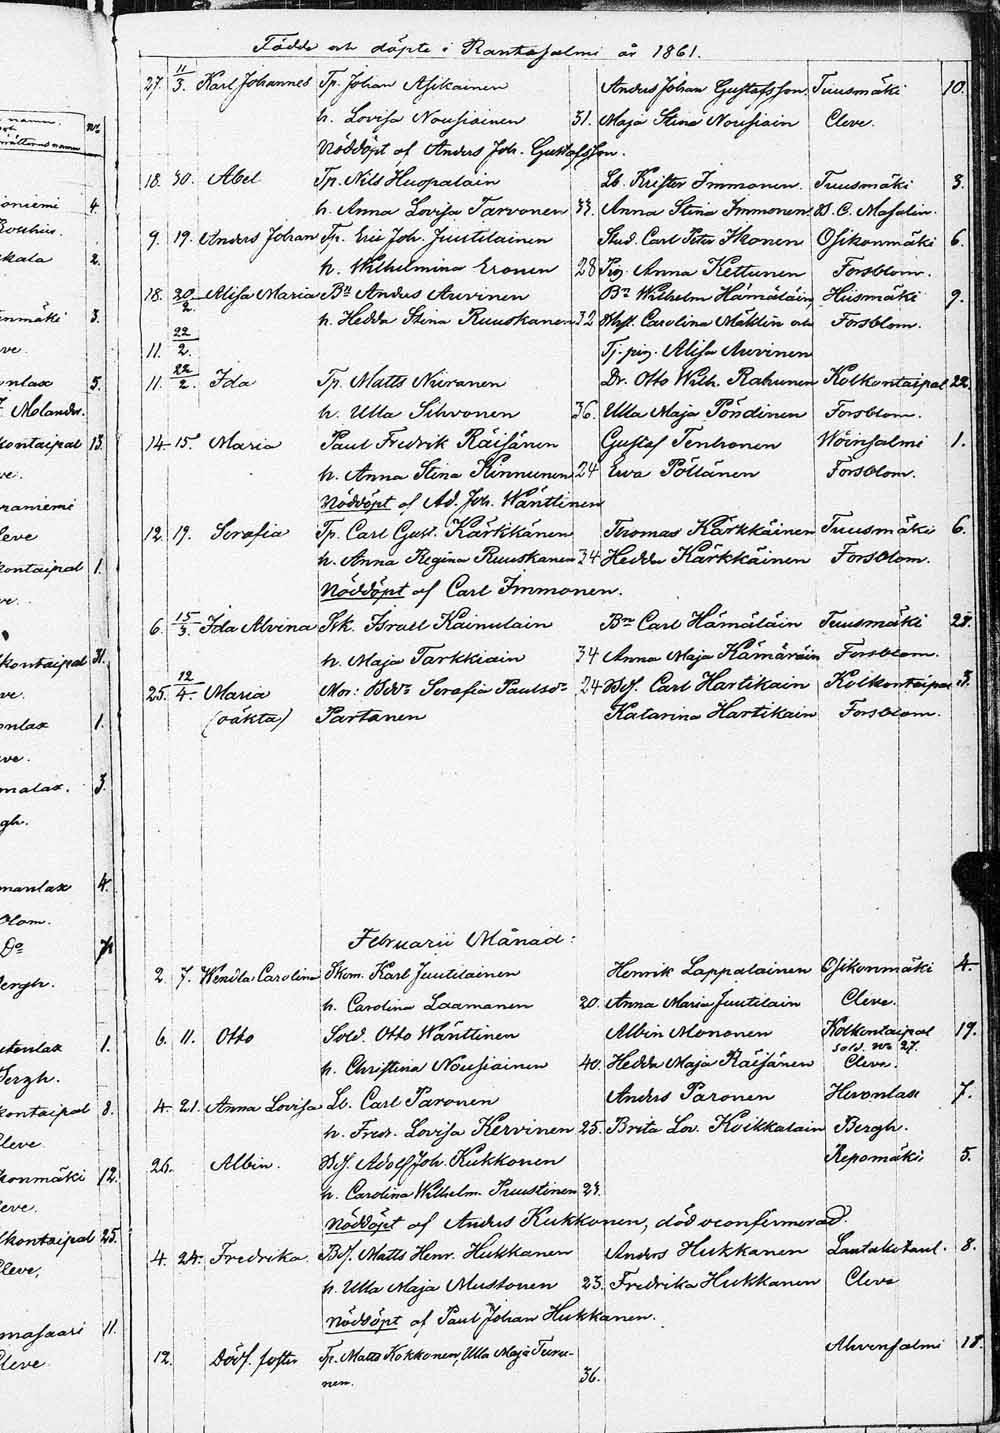 namn
No
oniemi 4.
Rouhiu.
kala 2.
nmäki 3.
ve.
nlax 5.
F. Molander.
kontaipal 13.
ve.
raniemi
leve
kontaipal 1.
ve.
lkontaipal 31.
ve.
onlax 1.
ve.
malax. 3.
gh.
manlax 4.
blom.
Do
ergh.
utonlax 1.
Bergh.
kontaipal 8.
leve
konmäki 12.
leve.
lkontaipal 25.
leve.
masaari 11.
leve
Födde och döpte i Rantasalmi år 1861.
27. 11/3. Karl Johannes Tp. Johan Asikainen Anders Johan Gustafsson Tuusmäki 10.
h. Lovisa Nousiainen 31. Maja Stina Nousiain Cleve.
Nöddöpt af Anders Joh. Gustafsson.
18. 30. Abel Tp. Nils Huopalain Lb. Krister Immonen. Tuusmäki 3.
h. Anna Lovisa Tarvonen 37. Anna Stina Immonen. D. C. Masalin.
9. 19. Anders Johan Tp. Eric Joh. Juutilainen Stud. Carl Peter Ikonen Osikonmäki 6.
h. Wilhelmina Eronen 28 Pig. Anna Kettunen Forsblom.
18. 20/2. Alisa Maria Bn Anders Auvinen Bn Wilhelm Hämäläin Hiismäki 9.
h. Hedda Stina Ruuskanen 32 Carolina Mäklin och Forsblom.
11. 22/2. Tj. pig. Alisa Auvinen
11. 22/2. Ida Tp. Matts Niiranen Dr. Otto Wilh. Rahunen Kolkontaipal 22.
h. Ulla Sihvonen 36. Ulla Maja Pöndinen Forsblom.
14. 15. Maria Paul Fredrik Räisänen Gustaf Tenhonen Woinsalmi 1.
h. Anna Stina Kinnunen 24 Ewa Pöllänen Forsblom.
Nöddöpt af Ad. Joh. Wänttinen
12. 19. Serafia Tp. Carl Gust. Kärkkänen Thomas Kärkkäinen Tuusmäki 6.
h. Anna Regina Ruuskanen 34 Hedda Kärkkäinen Forsblom.
Nöddöpt af Carl Immonen.
6. 15/3. Ida Alvina Israel Kainulain Bn Carl Hämäläin Tuusmäki 28.
h. Maja Tarkkiain 34 Anna Maja Kämäräin Forsblom.
25. 12/4. Maria Mor: Serafia Paulsdr 24 Carl Hartikain Kolkontaipal 3.
(oäkta) Partanen Katarina Hartikain Forsblom.
Februarii Månad:
2. 7. Wendla Carolina Skom. Karl Juutilainen Henrik Lappalainen Osikonmäki 4.
h. Carolina Laamanen 20. Anna Maria Juutilain Cleve.
6. 11. Otto Sold. Otto Wänttinen Albin Mononen Kolkontaipal 19.
sold. No 27.
h. Christina Nousiainen 40. Hedda Maja Räisänen Cleve.
4. 21. Anna Lovisa Lb. Carl Paronen Anders Paronen Hevonlax 7.
h. Fredr. Lovisa Kervinen 25. Brita Lov. Koikkalain Bergh.
26. Albin. Adolf Joh. Kukkonen Repomäki 5.
h. Carolina Wilhelm. Puustinen 27.
Nöddöpt af Anders Kukkonen, död oconfirmerad.
4. 24. Fredrika Matts Henr. Hukkanen Anders Hukkanen 8.
h. Ulla Maja Mustonen 23. Fredrika Hukkanen Cleve
Nöddöpt af Paul Johan Hukkanen.
12. Dödf. foster Tp. Matts Kokkonen, Ulla Maja Turu- Ahvensalmi 18.
nen. 36.